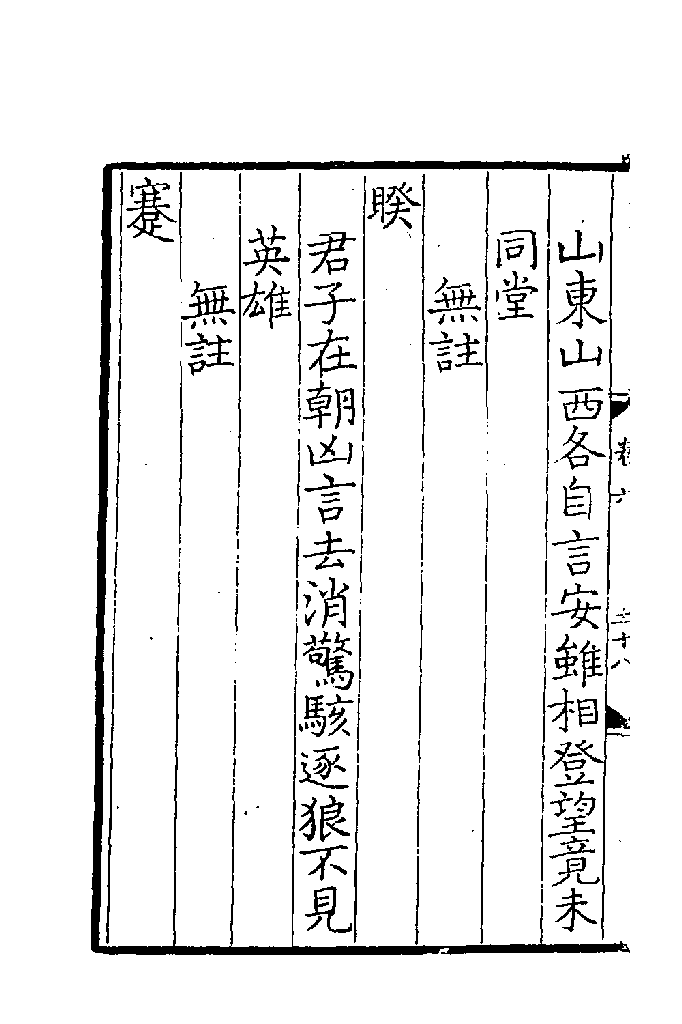 山東山西各自言安雖相登望竟未
同堂
無註
睽
君子在朝凶言去消驚駭逐狼不見
英雄
無註
蹇